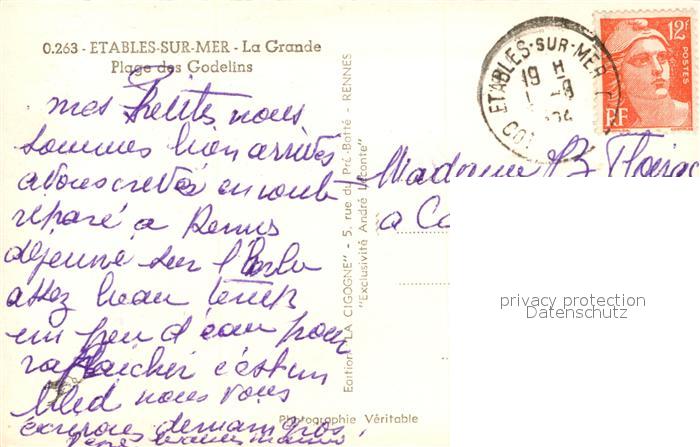 0.263 - ETABLES-SUR-MER - La Grande
Plage des Godelins
mes Petites nous
sommes bien arrivés
avons crevé en route
réparé a Rennes
déjeuné sur l'herbe
assez beau temps
un peu d'eau pour
rafraichir c'est un
bled nous vous
écrirons demain gros
Edition "LA CIGOGNE" - 5, rue du Pré-Botté - RENNES
"Exclusivité André Leconte"
Photographie Véritable
ETABLES-SUR-MER
19 H
12F
POSTES
RF
Madame
a
privacy protection
Datenschutz